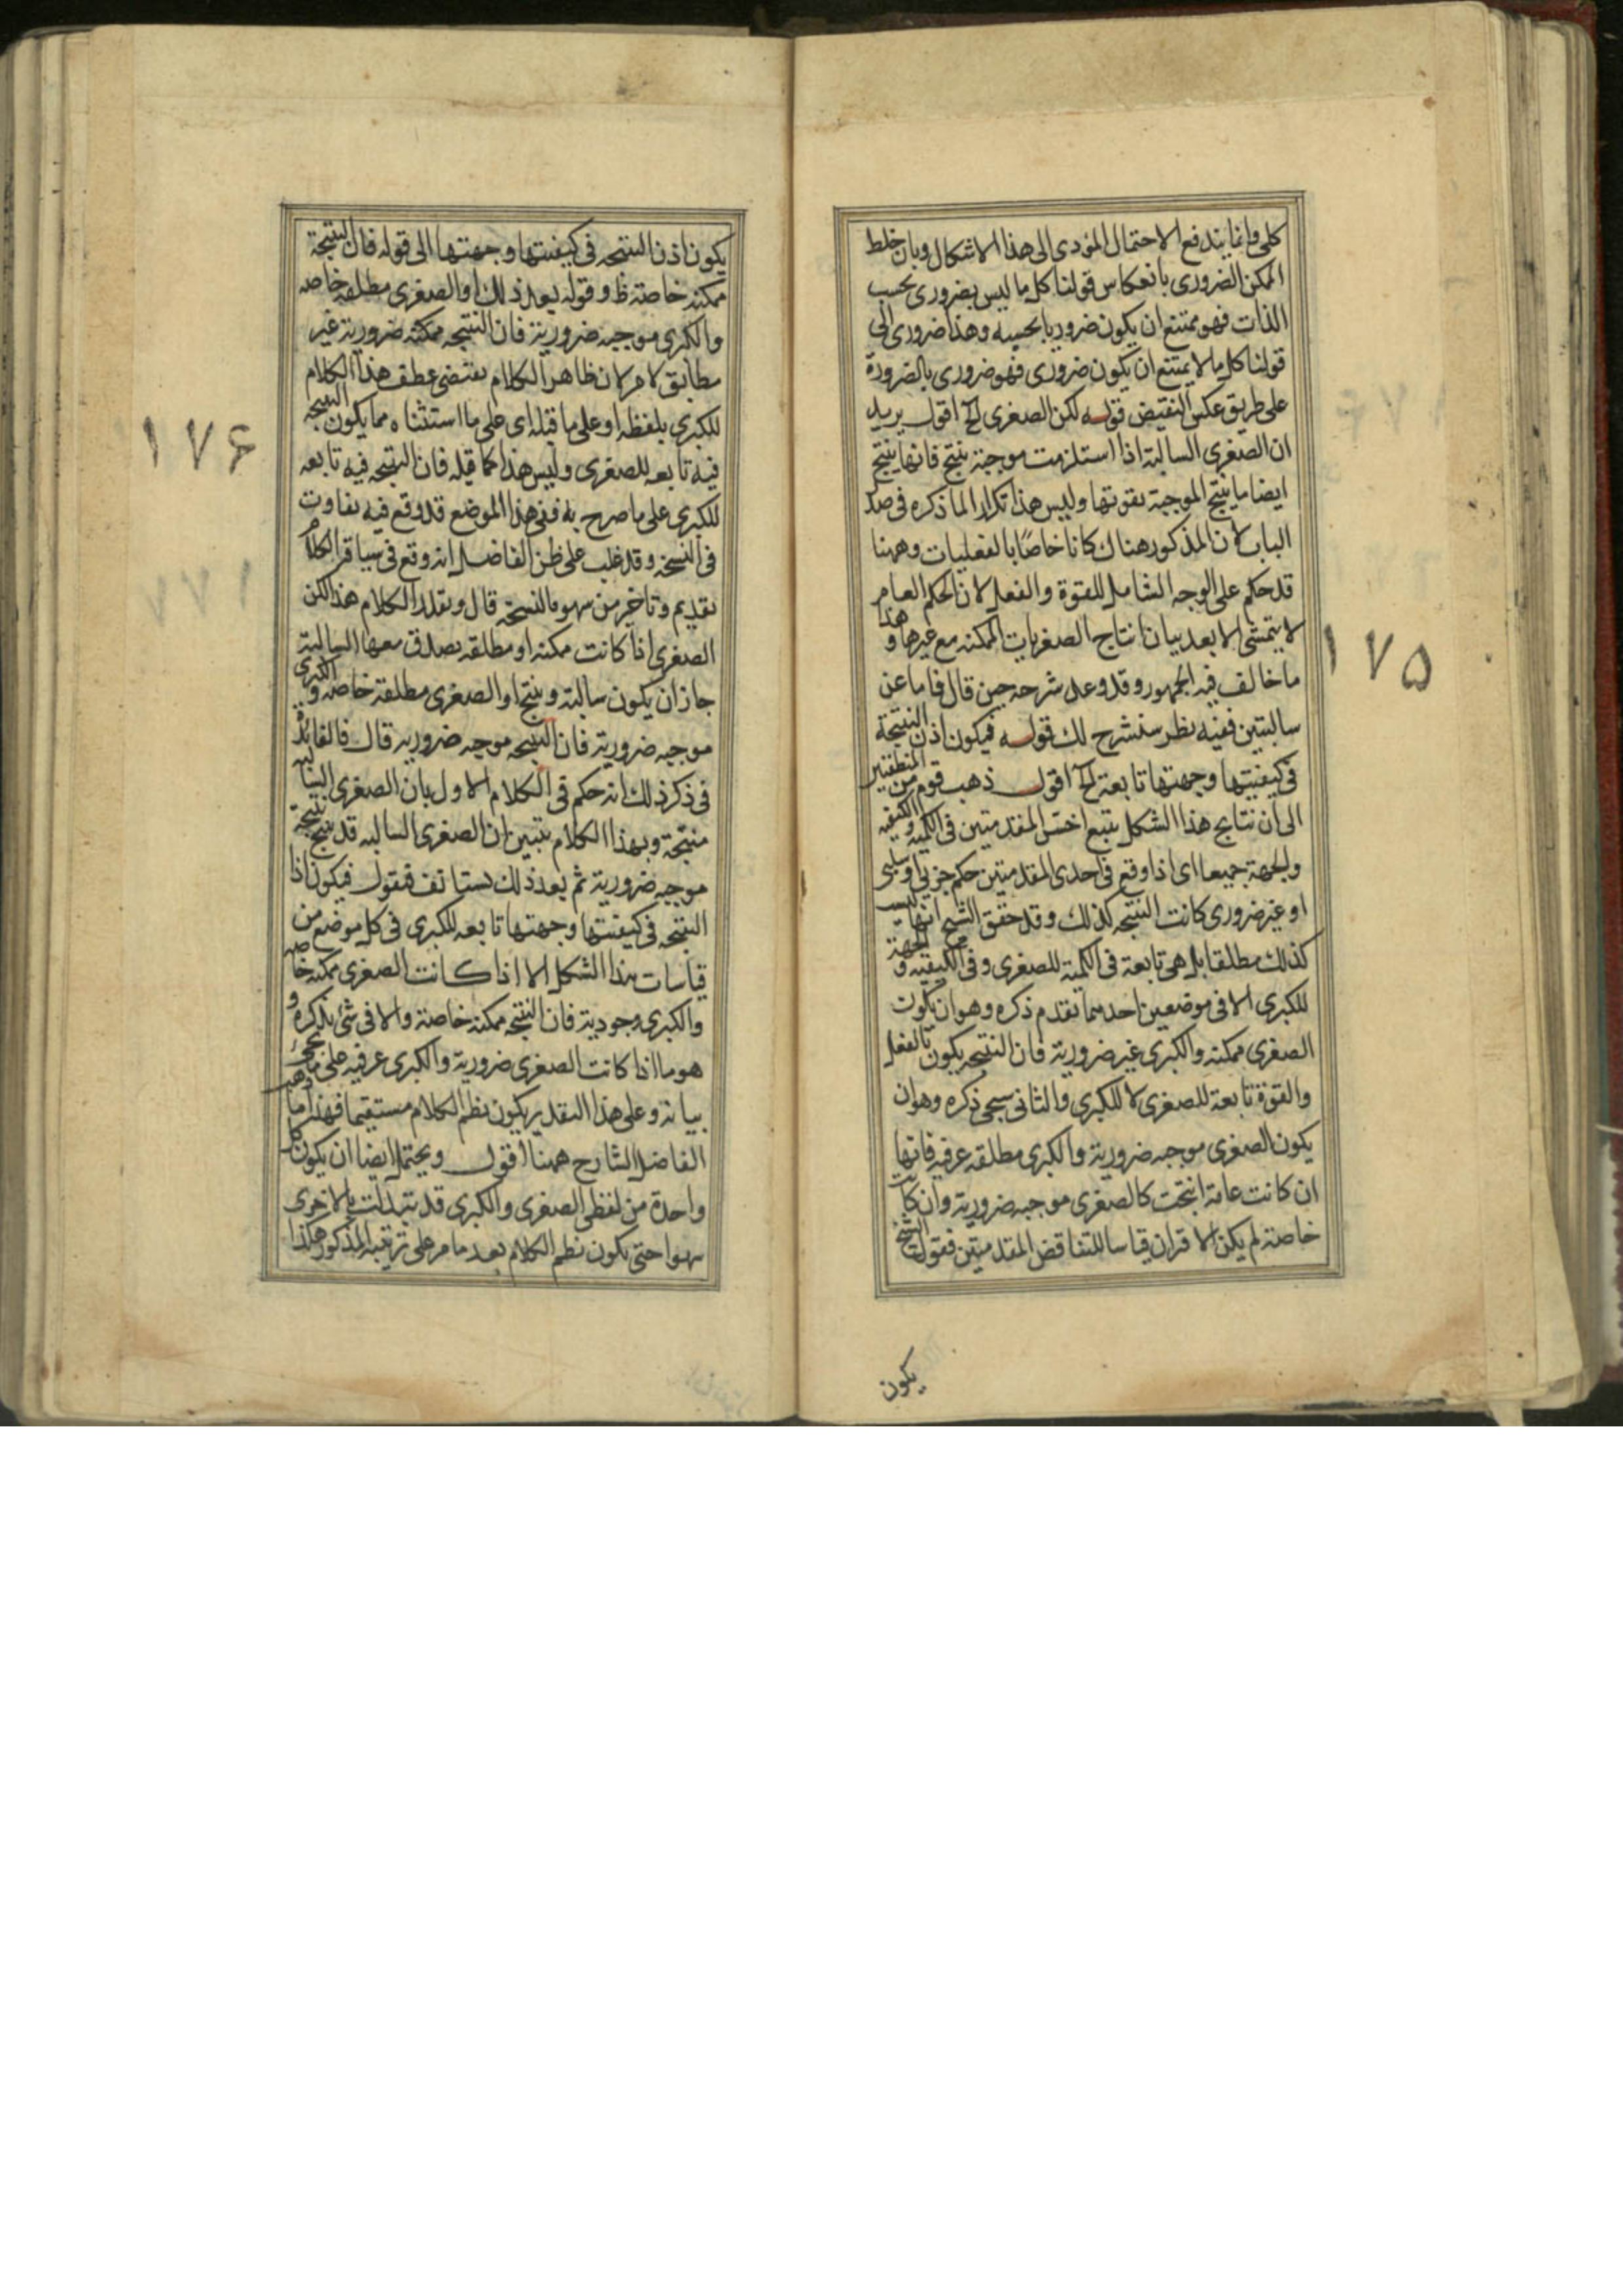 كلى وانما يندفع الاحتمال المؤدى الى هذا الاشكال وبان خلط
الممكن الضرورى بانعكاس قولنا كل ما ليس بضرورى بحسب
الذات فهو ممتنع ان يكون ضروريا بحسبه وهذا ضرورى الى
قولنا كل ما لا يمتنع ان يكون ضرورى فهو ضرورى بالضرورة
على طريق عكس النقيض قوله لكن الصغرى الخ اقول يريد
ان الصغرى السالبة اذا استلزمت موجبة ينتج فانها ينتج
ايضا ما ينتج الموجبة بقوتها وليس هذا تكرارا لما ذكره فى صدر
الباب لان المذكور هناك كانا خاصا بالفعليات وههنا
قد حكم على الوجه الشامل للقوة والفعل لان الحكم العام
لا يتمشى الا بعد بيان انتاج الصغريات الممكنه مع غيرها وهذا
ما خالف فيه الجمهور وقد وعد شرحه حين قال فاما عن
سالبتين ففيه نظر سنشرح لك قوله فيكون اذن النتيجة
فى كيفيتها وجهتها تابعة الخ اقول ذهب قوم من المنطقيين
الى ان نتايج هذا الشكل يتبع اخس المقدمتين فى الكميه والكيفيه
والجهة جميعا اى اذا وقع فى احدى المقدمتين حكم جزيى او سلبى
او غير ضرورى كانت النتيجه كذلك وقد حقق الشيخ انها ليست
كذلك مطلقا بل هى تابعة فى الكمية للصغرى وفى الكيفيه والجهة
للكبرى الا فى موضعين احدهما تقدم ذكره وهو ان يكون
الصغرى ممكنه والكبرى غير ضرورية فان النتيجه يكون بالفعل
والقوة تابعة للصغرى لا للكبرى والثانى سيجى ذكره وهو ان
يكون الصغرى موجبه ضرورية والكبرى مطلقه عرفيه فانها
ان كانت عامة انتجت كالصغرى موجبه ضرورية وان كانت
خاصة لم يكن الاقتران قياسا للتناقض المقدمتين فقول الشيخ
يكون
١٧٥
يكون اذن النتيجه فى كيفيتها وجهتها الى قوله فان النتيجة
ممكنه خاصة ظ وقوله بعد ذلك او الصغرى مطلقه خاصه
والكبرى موجبه ضرورية فان النتيجه ممكنه ضرورية غير
مطابق لامر لان ظاهر الكلام يقتضى عطف هذا الكلام
للكبرى بلفظه او على ما قبله اى على ما استثناه مما يكون النتيجه
فيه تابعه للصغرى وليس هذا كما قبله فان النتيجه فيه تابعه
للكبرى على ما صرح به ففى هذا الموضع قد وقع فيه تفاوت
فى النسخه وقد غلب على ظن الفاضل انه وقع فى سياقة الكلام
تقديم وتاخير من سهو بالنسخة قال وتقدير الكلام هذا لكن
الصغرى اذا كانت ممكنه او مطلقه يصدق معها السالبة
جاز ان يكون سالبة وينتج او الصغرى مطلقة خاصه والكبرى
موجبه ضرورية فان النتيجه موجبه ضروريه قال فالفائدة
فى ذكر ذلك انه حكم فى الكلام الاول بان الصغرى السالبه
منتجة وبهذا الكلام يتبين ان الصغرى السالبه قد ينتج نتيجة
موجبه ضرورية ثم بعد ذلك يستانف فيقول فيكون اذا
النتيجه فى كيفيتها وجهتها تابعه للكبرى فى كل موضع من
قياسات هذا الشكل الا اذا كانت الصغرى ممكنه خاصه
والكبرى وجودية فان النتيجه ممكنه خاصة والا فى شئ نذكره و
هو ما اذا كانت الصغرى ضرورية والكبرى عرفيه على ما يجئ
بيانه وعلى هذا التقدير يكون نظم الكلام مستقيما فهذا ما ذهب
الفاضل الشارح ههنا اقول ويحتمل ايضا ان يكون كل
واحدة من لفظى الصغرى والكبرى قد تبدلت بالاخرى
سهوا حتى يكون نظم الكلام بعد ما مر على ترتيبه المذكور هكذا
١٧۶